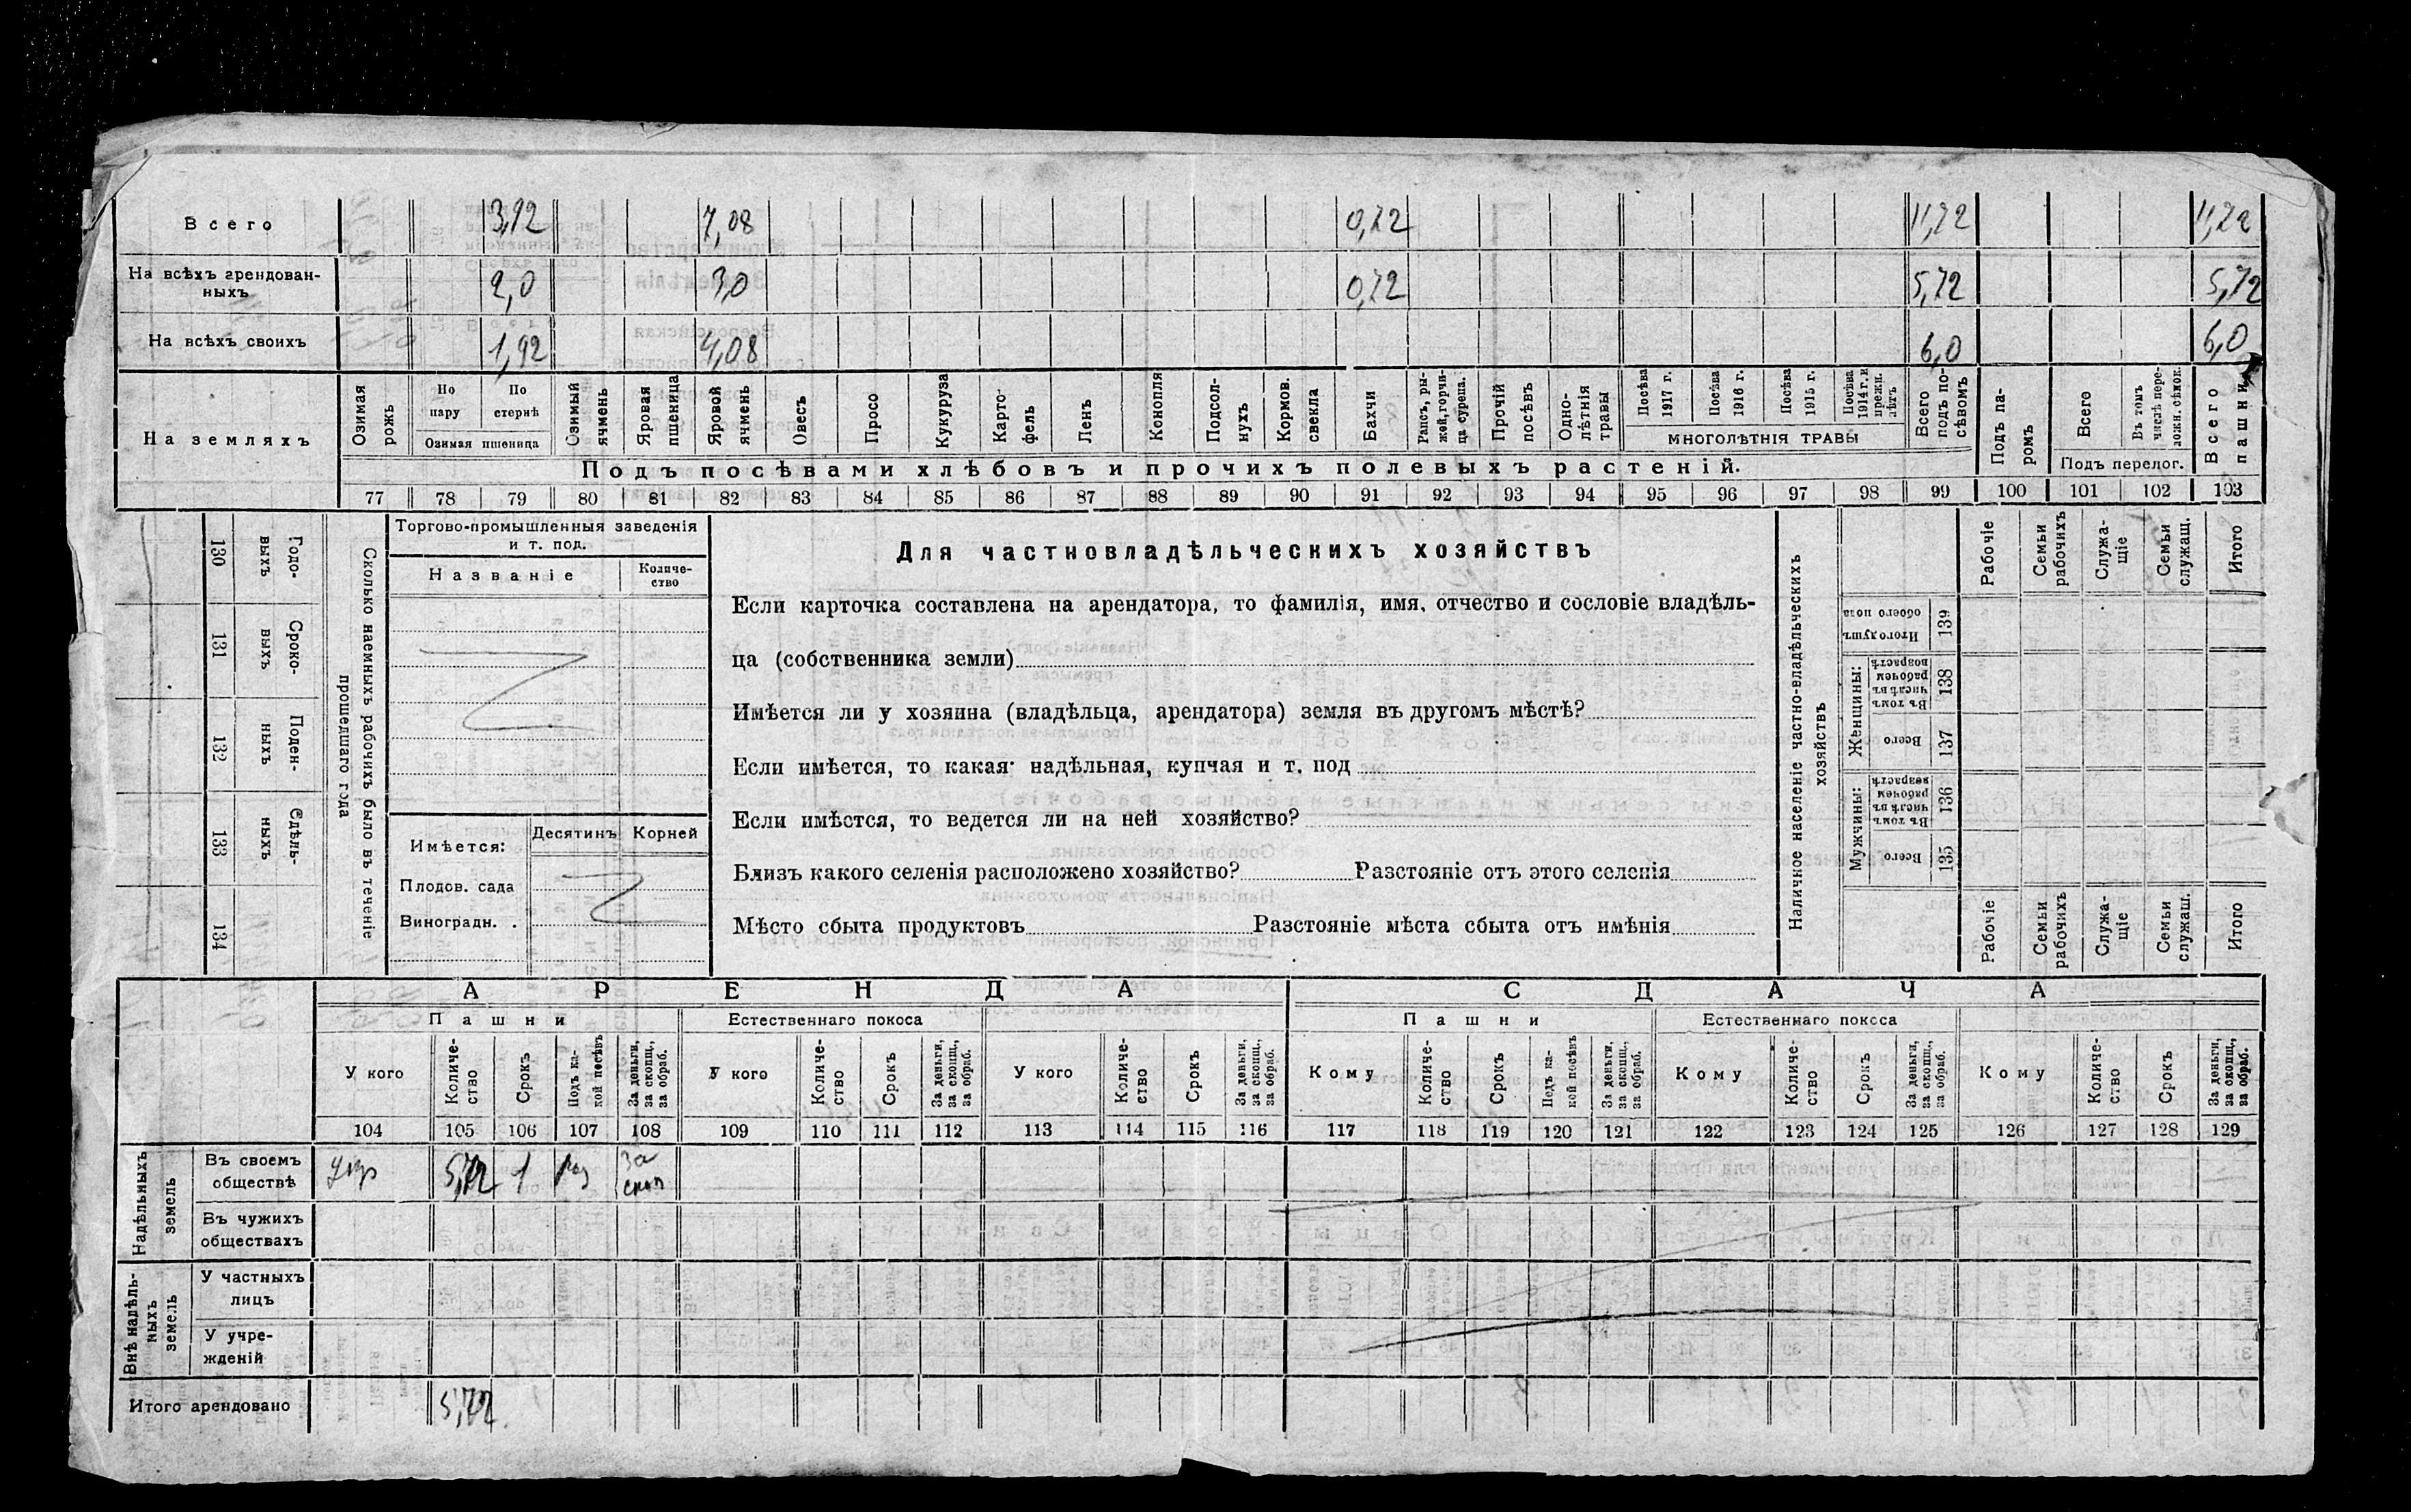 Всего 3,92 7,08 0,72 11,72 11,72
На всѣхъ арендован-
ныхъ 2,0 3,0 0,72 5,72 5,72
На всѣхъ своихъ 1,92 4,08 6,0 6,0
На земляхъ
Озимая рожь
По пару
По стернѣ
Озимая пшеница
Озимый ячмень
Яровая пшеница
Яровой ячмень
Овесъ
Просо
Кукуруза
Карто-
фель
Ленъ
Конопля
Подсол-
нухъ
Кормов. свекла
Бахчи
Рапсъ, ры-
жей, горчи-
ца сурепа.
Прочій посѣвъ
Одно-
лѣтнія травы
Посѣва 1917 г.
Посѣва 1916 г.
Посѣва 1915 г.
Посѣва 1914 г. и прежн. лѣтъ
МНОГОЛѢТНІЯ ТРАВЫ
Всего подъ по-
сѣвомъ
Подъ па-
ромъ
Всего
Въ томъ числѣ пере-
ложн. сѣнок.
Подъ перелог.
Всего пашни
Подъ посѣвами хлѣбовъ и прочихъ полевыхъ растеній.
77 78 79 80 81 82 83 84 85 86 87 88 89 90 91 92 93 94 95 96 97 98 99 100 101 102 103
130 131 132 133 134
Годо-
выхъ
Сроко-
выхъ
Поден-
ныхъ
Сдѣль-
ныхъ
Сколько наемныхъ рабочихъ было въ теченіе
прошедшаго года
Торгово-промышленныя заведенія
и т. под.
Названіе
Количе-
ство
Имѣется:
Десятинъ Корней
Плодов. сада
Виноградн. .
Для частновладѣльческихъ хозяйствъ
Если карточка составлена на арендатора, то фамилія, имя, отчество и сословіе владѣль-
ца (собственника земли)
Имѣется ли у хозяина (владѣльца, арендатора) земля въ другомъ мѣстѣ?
Если имѣется, то какая: надѣльная, купчая и т. под
Если имѣется, то ведется ли на ней хозяйство?
Близъ какого селенія расположено хозяйство? Разстояніе отъ этого селенія
Мѣсто сбыта продуктовъ Разстояніе мѣста сбыта отъ имѣнія
Наличное населеніе частно-владѣльческихъ
хозяйствъ
Рабочіе
Семьи рабочихъ
Служа-
щіе
Семьи служащ.
Итого
Итого душъ обоего пола 139
Женщины:
Въ томъ числѣ въ рабочемъ возрастѣ 138
Всего 137
Мужчины:
Въ томъ числѣ въ рабочемъ возрастѣ 136
Всего 135
Рабочіе
Семьи рабочихъ
Служа-
щіе
Семьи служащ.
Итого
АРЕНДА СДАЧА
Пашни Естественнаго покоса Пашни Естественнаго покоса
У кого
Количе-
ство
Срокъ
Подъ ка-
кой посѣвъ
За деньги, за скопщ., за обраб.
У кого
Количе-
ство
Срокъ
За деньги, за скопщ., за обраб.
У кого
Количе-
ство
Срокъ
За деньги, за скопщ., за обраб.
Кому
Количе-
ство
Срокъ
Подъ ка-
кой посѣвъ
За деньги, за скопщ., за обраб.
Кому
Количе-
ство
Срокъ
За деньги, за скопщ., за обраб.
Кому
Количе-
ство
Срокъ
За деньги, за скопщ., за обраб.
104 105 106 107 108 109 110 111 112 113 114 115 116 117 118 119 120 121 122 123 124 125 126 127 128 129
Надѣльныхъ
земель
Въ своемъ
обществѣ 5,72 1 За скоп
Въ чужихъ
обществахъ
Внѣ надѣль-
ныхъ
земель
У частныхъ
лицъ
У учре-
жденій
Итого арендовано 5,72